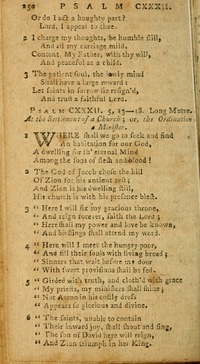 250 PSALM CXXXII.
Or do I act a haughty part?
Lord, I appeal to thee.
2 I charge my thoughts, be humble still,
And all my carriage mild,
Content My Father, with thy will,
And peaceful as a child.
3 The patient soul, the lowly mind
Shall have a large reward:
Let saints in sorrow lie resign'd,
And trust a faithful Lord.
PSALM CXXXII. 5, 13—18. Long Metre.
At the Settlement of a Church; or, the Ordination
a Minister.
1 WHERE shall we go to seek and find
An habitation for our God,
A dwelling for th' eternal Mind
Among the sons of flesh and blood!
2 The God of Jacob chose the hill
Of Zion for his ancient rest;
And Zion is his dwelling still,
His church is with his presence blest.
3 “ Here I will fix my gracious throne,
“ And reign forever, saith the Lord;
“ Here shall my power and love be known,
“ And blessings shall attend my word.
4 “ Here will I meet the hungry poor,
“ And fill their souls with living bread;
“ Sinners that wait before my door
“ With sweet provisions shall be fed.
5 “ Girded with truth, and cloth'd with grace
“ My priests, my ministers shall shine;
“ Not Aaron in his costly dress
“ Appears so glorious and divine.
6 “ The saints, unable to contain
“ Their inward joy, shall shout and sing,
“ The son of David here will reign,
“ And Zion triumph in her King.